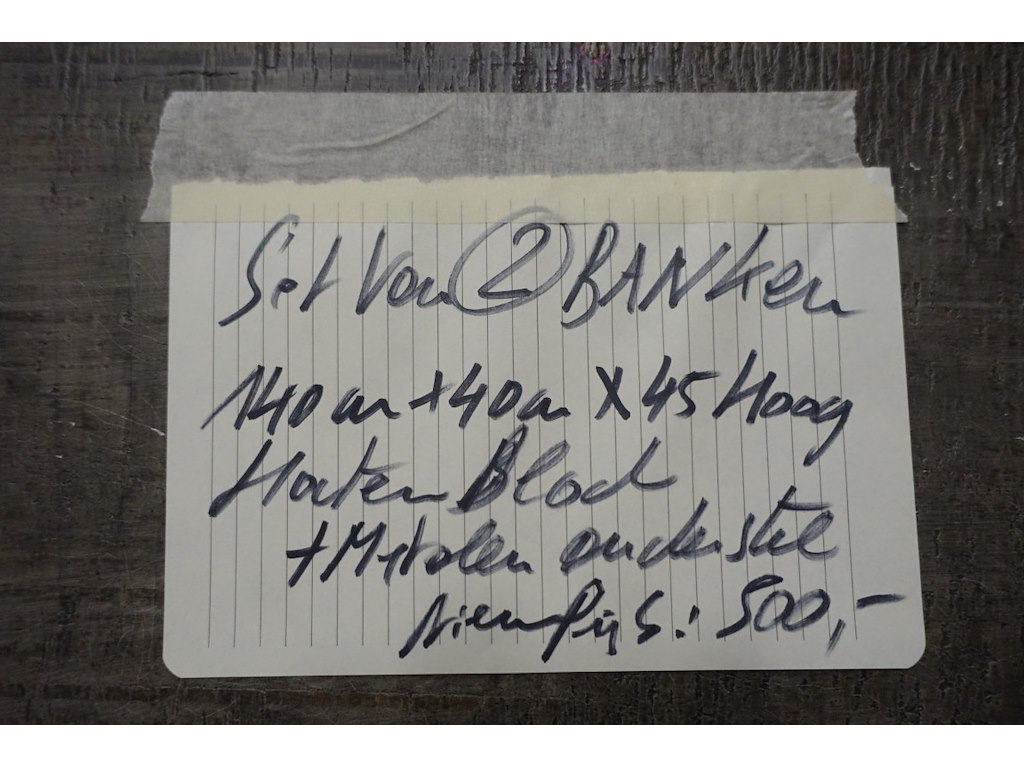 Set Van 2 BANken
140 cm + 40 cm X 45 Hoog
Houten Blad
+ Metalen onderstel
Nieuw Prijs: 500,-